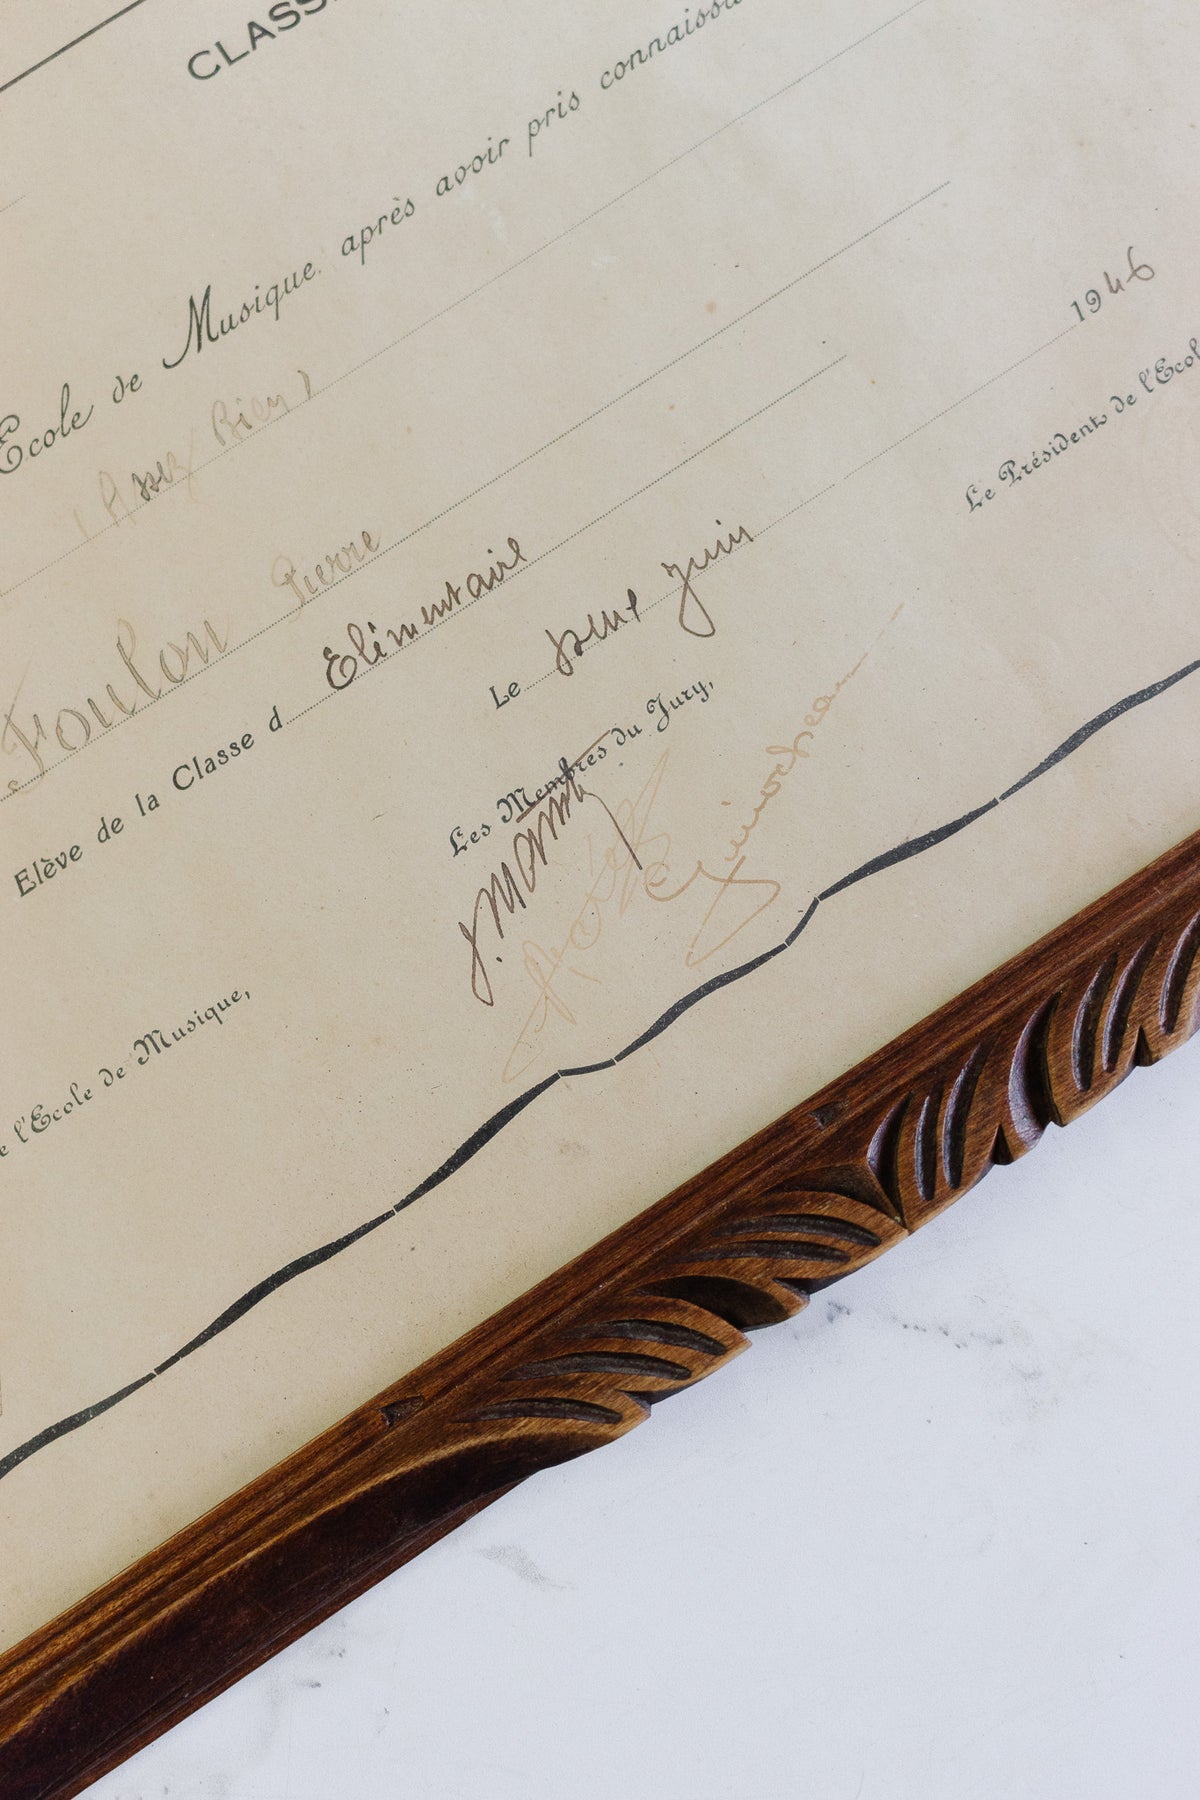 CLASS
Ecole de Musique après avoir pris connaissa
(Assez Bien)
Foulon Pierre
Elève de la Classe d Elémentaire
Le Juin 1946
Les Membres du Jury,
Le Président de l'Ecol
e l'Ecole de Musique,